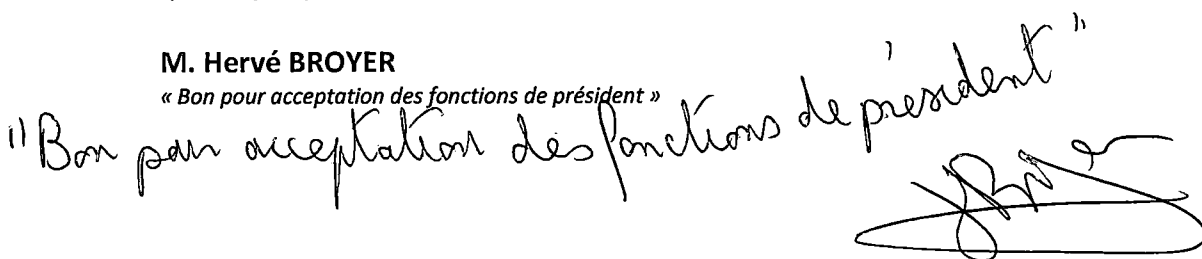 M. Hervé BROYER
« Bon pour acceptation des fonctions de président »
"Bon pour acceptation des fonctions de président"